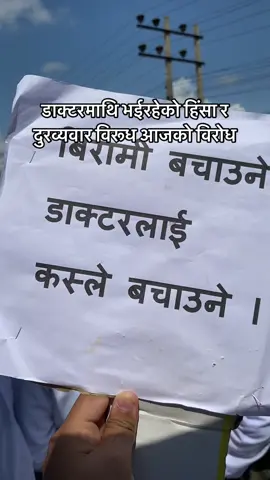 डाक्टरमाथि भईरहेको हिंसा र
दुरव्यवार विरूध आजको विरोध
बिरामी बचाउने
डाक्टरलाई
कस्ले बचाउने ।